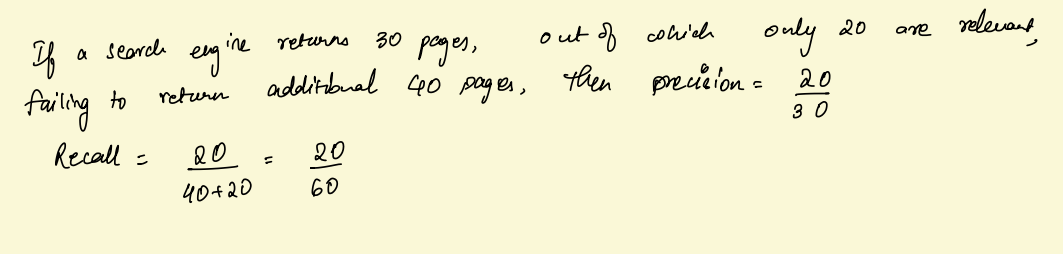 If a search engine returns 30 pages, out of which only 20 are relevant,
failing to return additional 40 pages, then precision = 20/30
Recall = 20/40+20 = 20/60